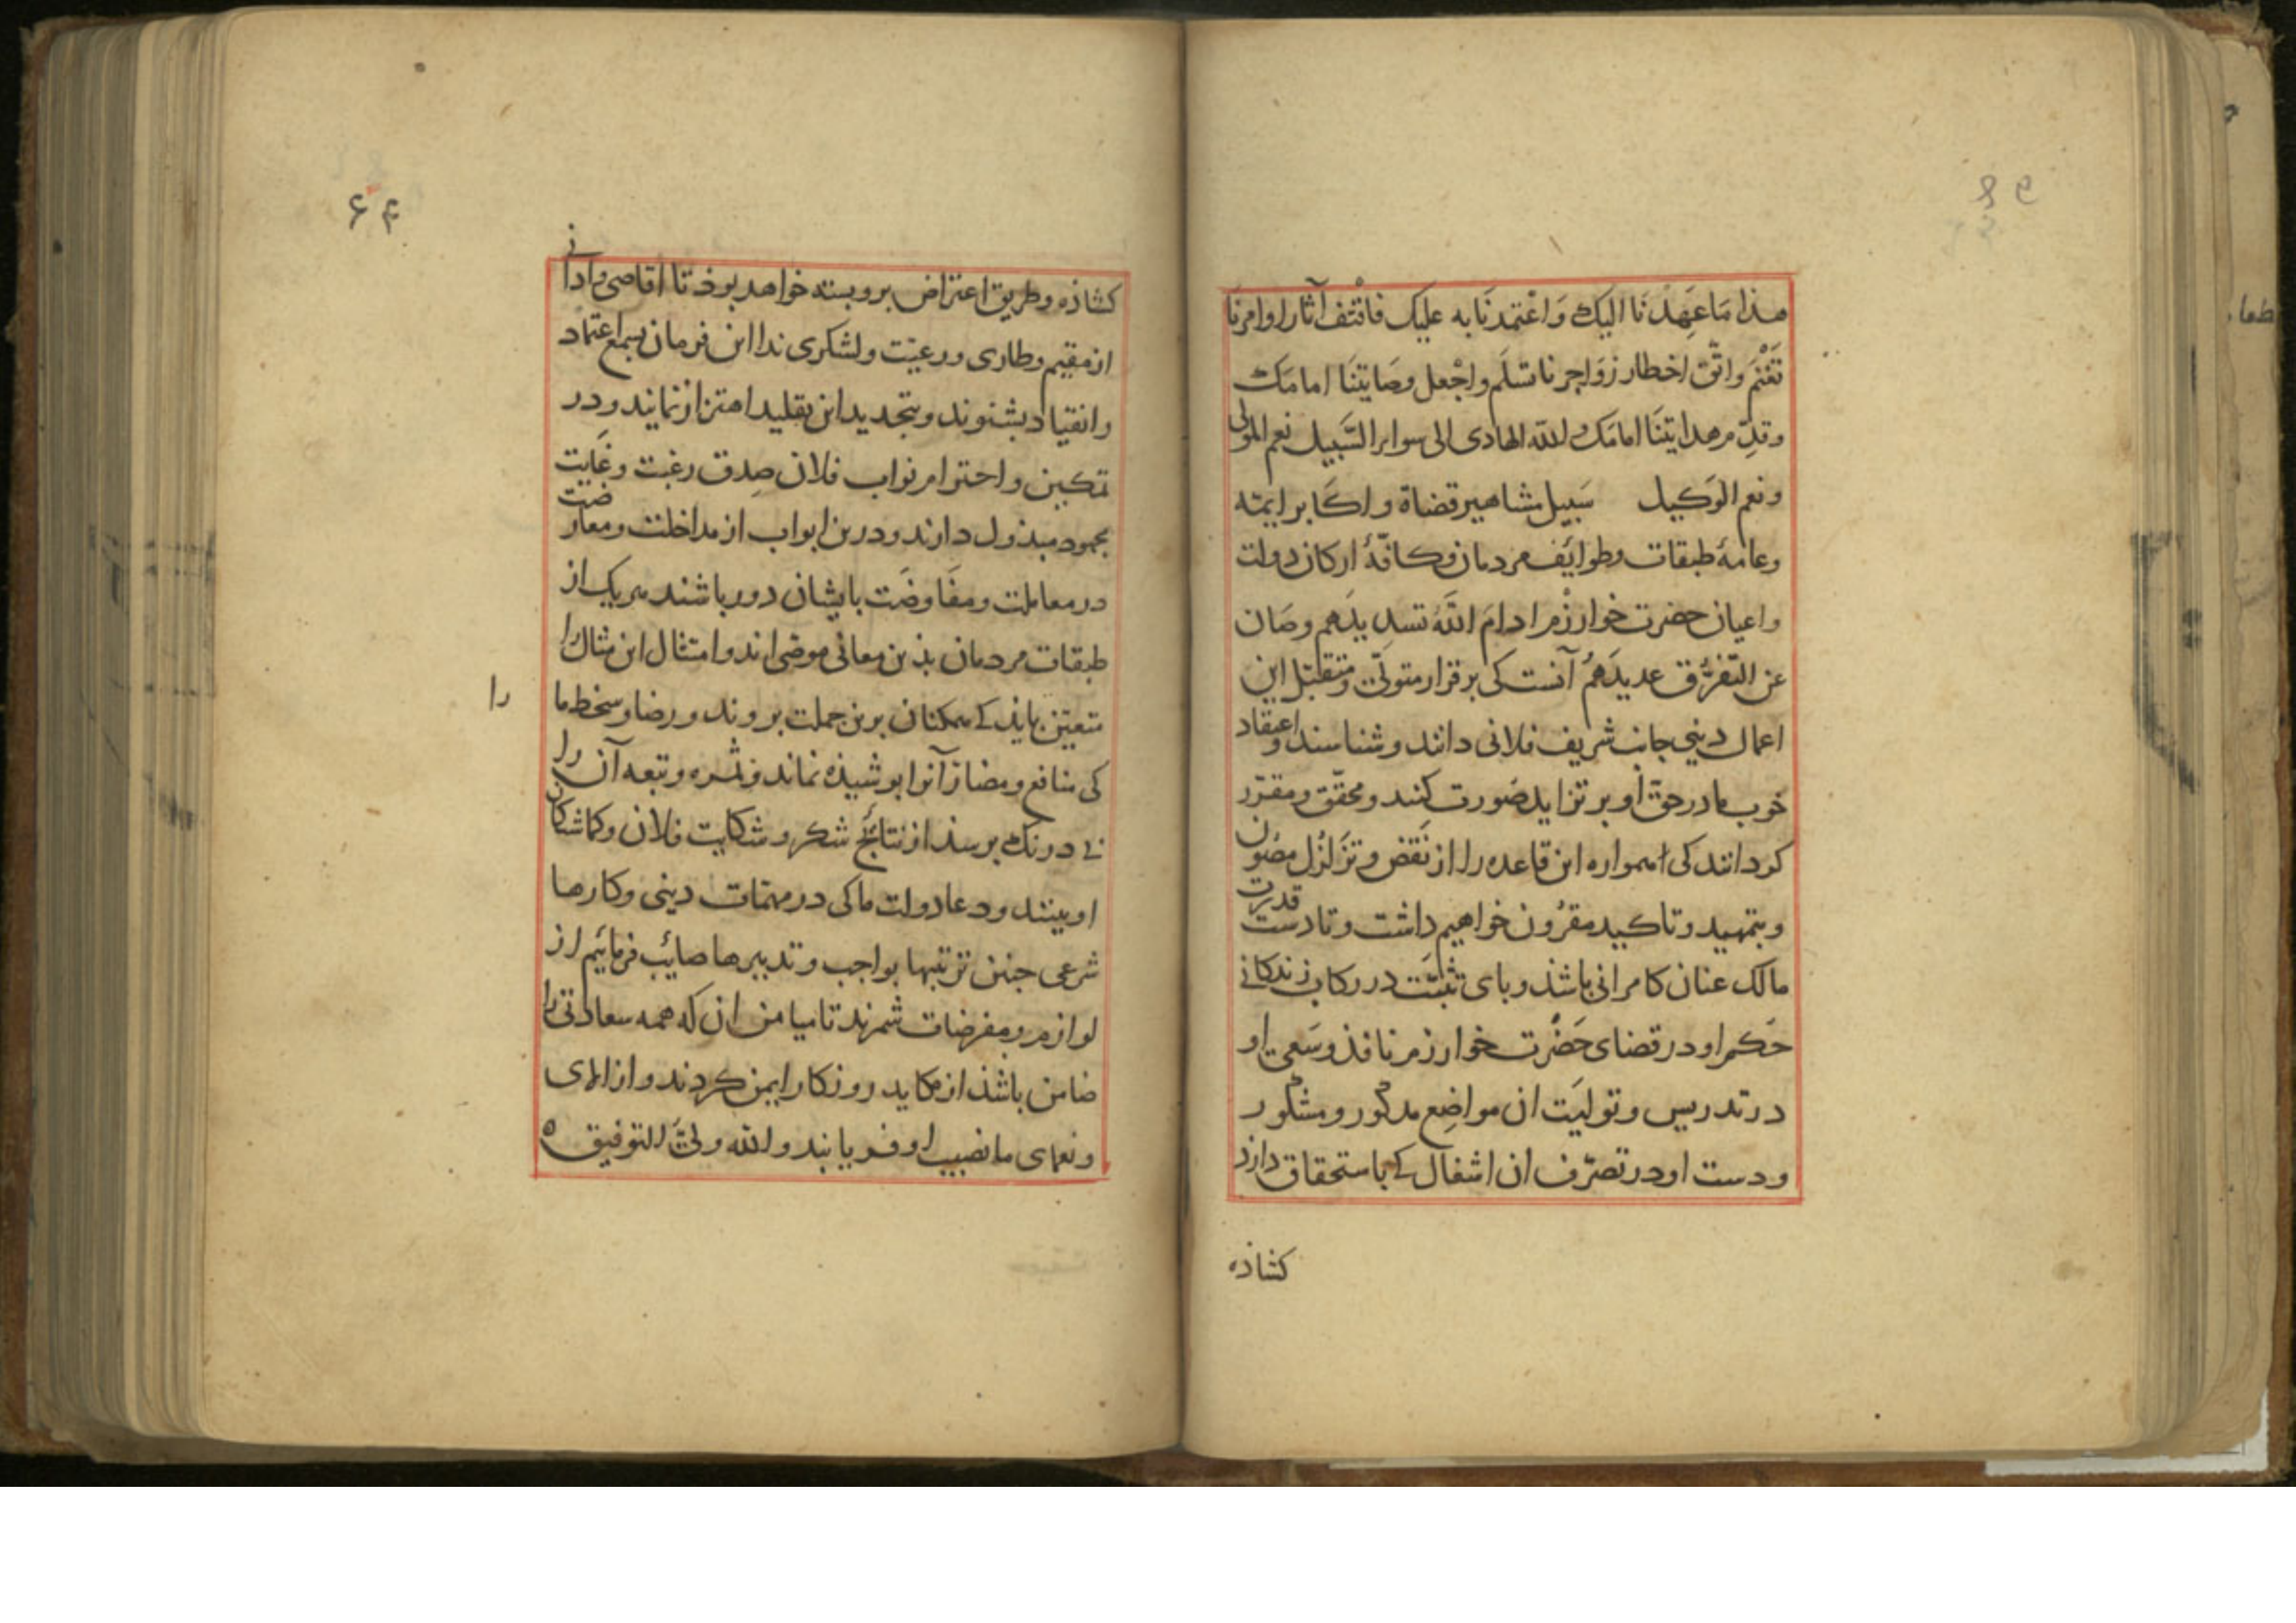 هذا مَا عَهِدْنَا الیک وَاعْتمدنَا به علیک فاقْتَفِ آثار اوامرنَا
تَغْنَم واتّق اخطار زوَاجرنا تسْلَم واجْعل وصَایتنَا امامَک
وقدِّم هدایتنَا امامَک والله الهادی الی سواء السَّبیل نعم المَولی
ونعم الوَکیل سَبیل مشاهیر قضاة و اکابر ایمّه
وعامهٔ طبقات وطوائف مردمان وکافّهٔ ارکان دولت
واعیان حضرت خوارزْم ادامَ اللّهُ تسدیدَهم وصَان
عن التّفرُّق عدیدَهُم آنست کی برقرار متولّی ومتقبّل این
اعمال دینی جانب شریف فلانی دانند و شناسند و اعتقاد
خوب ما در حقّ او بر تزاید صُورت کنند ومحقّق ومقرّر
کردانند کی همواره این قاعده را از نَقض و تزَلزُل مصُون
وبتمهید وتاکید مقرُون خواهیم داشت و تا دست قدرت
مالک عنان کامرانی باشذ و بای تثبّت در رکاب زندکانی
حَکم او در قضای حَضرَت خوارزم نافذ وسَعی او
در تدریس و تولیَت ان مواضع مذکور و مشکور
ودست او در تصرّف ان اشغال کی باستحقاق دارذ
کشاذه
۶۴
کشاذه وطریق اعتراض برو بسته خواهد بوذ تا اقاصی و ادانی
از مقیم وطاری ورعیّت ولشکری ندا این فرمان بسمع اعتماد
وانقیاد بشنوند وبتجدید این تقلید اهتزاز نمایند و در
تمکین و احترام نواب فلان صِدق رغبت وغَایت
مجهود مبذول دارند ودرین ابواب از مداخلت ومعارضت
در معاملت ومفَاوضَت با یشان دور باشند هریک از
طبقات مردمان بذین معانی موصی اند و امتثال این مثال را
متعیّن بایذ کی همکنان برین جملت بروند و رضا و سخط ما
را
کی منافع ومضار آنرا بوشیذه نماند وثمره و تبعه آن را
بی درنک برسند از نتائج شکر و شکایت فلان و کماشتکان
او بینند ودعا دولت ما کی در مهمّات دینی وکارها
شرعی جنین ترتیبها بواجب وتدبیرها صائب فرمائیم از
لوازم ومفرضات شمرند تا میامن ان که همه سعادتی را
ضامن باشذ از مکاید روزکار ایمن کردند و از
ونعمای ما نصیب اوفر یابند والله ولیّ التوفیق ه